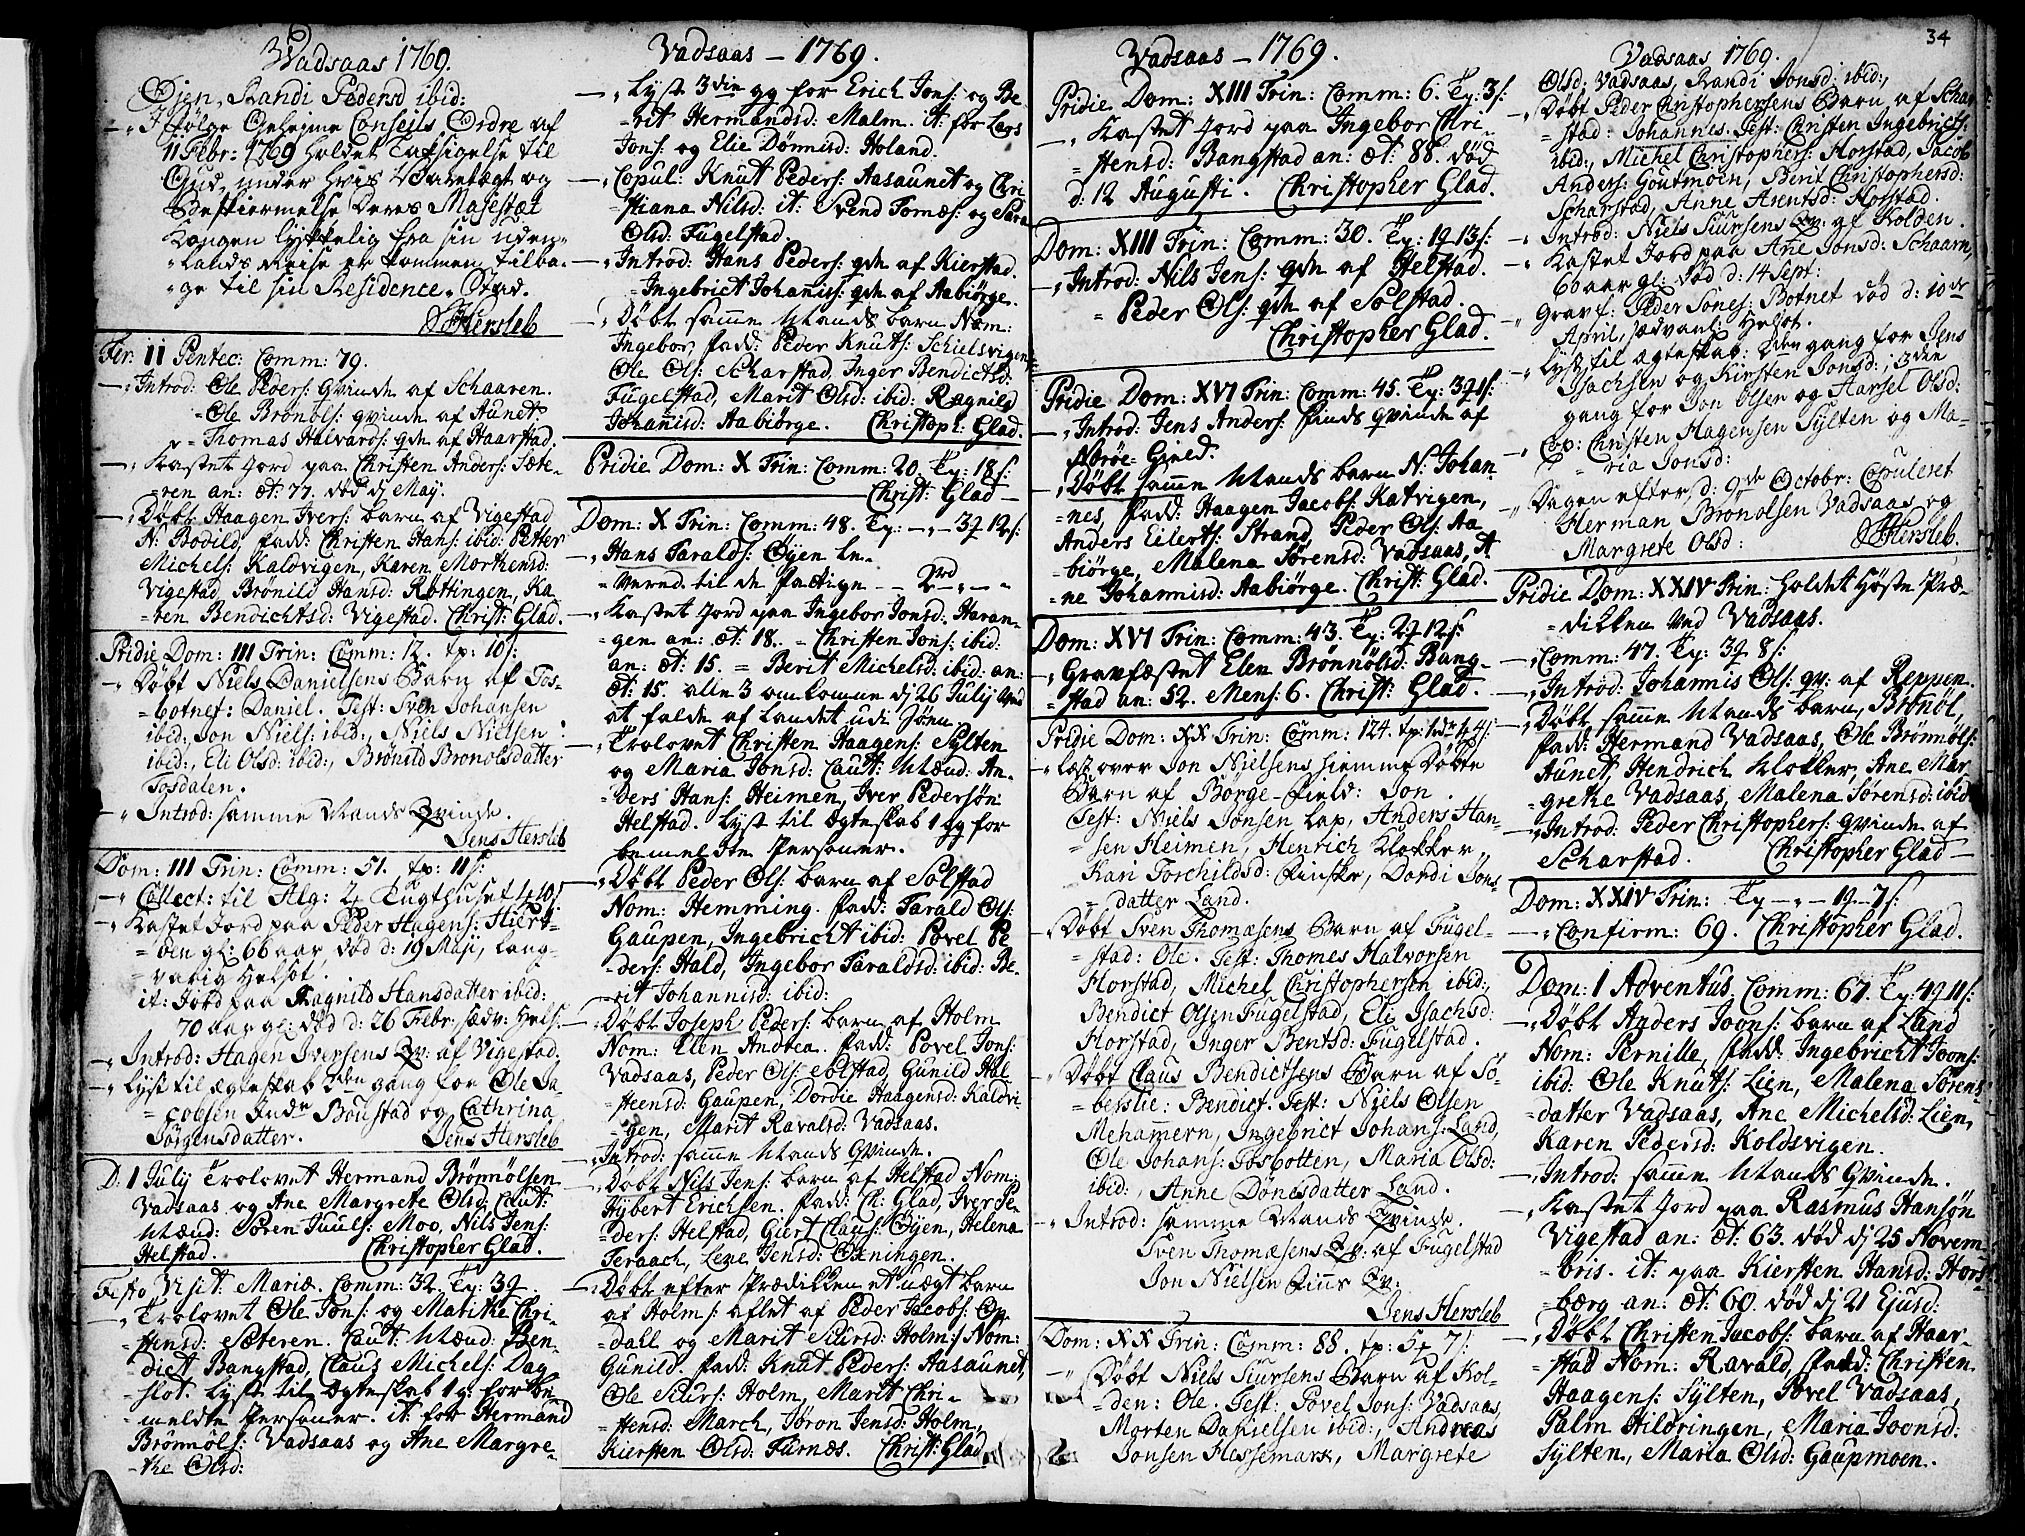 34
Vadsaas 1769.
Öien, Randi Pedersd ibid:
I følge Geheime Conseils Ordre af
11 Febr: 1769 holdet Taksigelse til
Gud, under hvis Varetægt og
Beskiermelse Deres Majestæt
Kongen lykkelig fra sin uden-
lands Reise er kommen tilba-
ge til sin Residence-Stad.
Hersleb
Fer: II Pentec: Comm: 79.
Introd: Ole Peders: Qvinde af Schaaren.
Ole Brønols: qvinde af Aunet.
Thomas Halvards: qvi af Haarstad.
Kastet Jord paa Christen Anders: Sæte-
ren an: æt: 77. død d May.
Döbt Haagen Ivers: barn af Vigestad
N: Bodild, fadd: Christen Hans: ibid: Petter
Michels: Kaldvigen, Karen Morthensd:
Vigestad, Brønild Hansd: Røttingen, Ka-
ren Bendichtsd: Vigestad. Christ: Glad.
Pridie Dom: III Trin: Comm: 12. tp: 10 s:
Döbt Niels Danielsens Barn af Fos-
botnet: Daniel. Test: Sven Johansen
ibid:, Jon Niels: ibid:, Niels Nielsen
ibid:, Eli Olsd: ibid:, Brønild Bronolsdatter
Fosdalen.
Introd: samme Mands Qvinde.
Jens Hersleb
Dom: III Trin: Comm: 51. tp: 11 s:
Collect: til Alg: Tugthuset
Kastet Jord paa Peder Hagens: Hiert-
öen gl: 66 aar, død d: 19 Maji, lang-
varig Helsot.
it: Jord paa Ragnild Hansdatter ibid:
70 aar gl: død d: 26 Febr: sædv: Hels:
Introd: Hagen Iversens Qv: af Vigestad.
Lyst til ægteskab 3den gang for Ole Ja-
cobsen Bøustad og Cathrina
Jørgensdatter. Jens Hersleb
D. 1 July Trolovet Hermand Brønnølsen
Vadsaas og Ane Margrete Olsd: Caut:
Mænd: Søren Juuls: Moo, Nils Jens:
Helstad. Christopher Glad.
Festo Visit: Mariæ. Comm: 32. Ty:
Trolovet Ole Jons: og Marithe Chri-
stensd: Sæteren. Caut: Mænd: Ben-
dict Bangstad, Claus Michels: Dag
slot. Lyst til Ægteskab 1 g: for be-
meldte Personer. it: for Hermand
Brønnøls: Vadsaas og Ane Margre-
the Olsd:
Vadsaas – 1769.
Lyst 3die gg for Erich Jons: og Be-
rit Hermandsd: Malm. it: for Lars
Jons: og Elie Dönnisd: Holand.
Copul: Knut Peders: Aasaunet og Chri
stiana Nilsd: it: Svend Tomæs: og Sara
Olsd: Fugelstad.
Introd: Hans Peders: qvi af Kierstad.
Ingebrict Johaniss: qvi af Aabiörge.
Döbt samme Mands barn Nom:
Ingebor, fadd: Peder Knuts: Schielsvigen
Ole Ols: Scharstad, Inger Bendictsd:
Fugelstad, Marit Olsd: ibid: Ragnild
Johanisd: Aabiörge. Christoph: Glad.
Pridie Dom: X Trin: Comm: 20. Ty: 18 s:
Christ: Glad
Dom: X Trin: Comm: 48. Ty:
Hans Taralds: Öyen
Vered. til de fattige
Kastet Jord paa Ingebor Jonsd: Haran-
gen an: æt: 18. Christen Jons: ibid:
an: æt: 15. Berit Michelsd: ibid: an:
æt: 15. alle 3 omkomne d 26 July ved
at falde af Landet udi Sönn
Trolovet Christen Haagens: Sylten
og Maria Jonsd: Caut: Mænd: An-
ders Hans: Heimen, Iver Pedersön
Helstad. Lyst til Ægteskab 1 gg for
bemeldte Personer.
Döbt Peder Ols: barn af Solstad
Nom: Hemming. fadd: Tarald Ols:
Gaupen, Ingebricht ibid: Povel Pe
ders: Hald, Ingebor Taraldsd: ibid: Be-
rit Johannisd: ibid:
Döbt Joseph Peders: barn af Holm
Nom: Elen Andrea. fadd: Povel Jons:
Vadsaas, Peder Ols: Solstad, Gunild Hal
steensd: Gaupen, Dordie Haagensd: Kaldvi-
gen, Marit Ravalsd: Vadsaas.
Introd: samme Mands Qvinde.
Döbt Nils Jens: barn af Helstad Nom:
Hybert Erichsen. fadd: Ch: Glad, Iver Pe-
ders: Helstad, Giert Claus: Öyen, Helena
Teraach, Lene Jensd: Oxningen.
Döbt efter Prædikken et uægt barn
af Holm /: aflet af Peder Jacobs: Op-
dall og Marit Siursd: Holm :/ Nom:
Gunild. fadd: Knut Peders: Aasaunet,
Ole Siurs: Holm, Marit Chri-
stensd: March, Jöron Jensd: Holm,
Kiersten Olsd: Furnæs. Christ: Glad.
Vadsaas – 1769.
Pridie Dom: XIII Trin: Comm: 6. Ty: 3 s:
Kastet Jord paa Ingebor Chri-
stensd: Bangstad an: æt: 88. död
d. 12 Augusti. Christopher Glad.
Dom: XIII Trin: Comm: 30. Ty:
Introd: Nils Jens: qvi af Helstad.
Peder Ols: qvi af Solstad.
Christopher Glad.
Pridie Dom: XVI Trin: Comm: 45. Ty:
Introd: Jens Anders: finds Qvinde af
Næröe-Gield.
Döbt samme Mands barn N: Johan
nes, fadd: Haagen Jacobs: Katvigen,
Anders Eilerts: Strand, Peder Ols: Aa
biörge, Malena Sörensd: Vadsaas, A
ne Johannisd: Aabiörge. Christ: Glad.
Dom: XVI Trin: Comm: 43. Ty:
Gravfæstet Elen Brönnölsd: Bang-
stad an: 52. Mens: 6. Christ: Glad.
Pridie Dom: XX Trin: Comm: 124. tp:
Læst over Jon Nielsens hiemme Döbte
Barn af Börge-Field: Jon.
Test: Niels Jonsen Lap, Anders Han-
sen Heimen, Henrich Klokker,
Kari Torchildsd: Finske, Dordi Jöns-
datter Land.
Döbt Sven Thomæsens Barn af Fugel-
stad: Ole. Test: Thomes Halvorsen
Horstad, Michel Christophersen ibid:,
Bendict Olsen Fugelstad, Eli Isachsd:
Horstad, Inger Bentsd: Fugelstad.
Döbt Claus Bendictsens Barn af Sö-
berslie: Bendict. Test: Niels Olsen
Mehammern, Ingebrict Johans: Land,
Ole Johans: Fosbotten, Maria Olsd:
ibid:, Anne Dönesdatter Land.
Introd: samme Mands Qvinde.
Sven Thomæsens Qv: af Fugelstad
Jon Nielsen Finns Qv:
Jens Hersleb
Dom: XX Trin: Comm: 88. tp:
Döbt Niels Siursens Barn af Kol-
den: Ole. Test: Povel Jons: Vadsaas,
Morten Danielsen ibid:, Andreas
Jonsen Flossemark, Margrete
Vadsaas 1769.
Olsd: Vadsaas, Randi Jonsd: ibid:,
Döbt Peder Christophersens Barn af Schar
stad: Johannis. Test: Christen Ingebrichts:
ibid:, Michel Christophers: Horstad, Jacob
Anders: Goutmoen, Berit Christophersd:
Scharstad, Anne Arentsd: Horstad.
Introd: Niels Siursens Qv: af Kolden.
Kastet Jord paa Ane Jonsd: Schaarn,
60 aar gl: död d: 14 Sept:
Gravf: Peder Jones: Botnet död d: 10de
April, sædvanl: Helsot.
Lyst til ægteskab: 2den gang for Jens
Isachsen og Kirsten Jonsd:, 3den
gang for Jon Olsen og Marset Olsd:
Cop: Christen Hagensen Sylten og Ma-
ria Jonsd:
Dagen efter d: 9de Octobr: Copuleret
Herman Bronolsen Vadsaas og
Margrete Olsd: Hersleb.
Pridie Dom: XXIV Trin: holdet Höste Præ-
dikken ved Vadsaas.
Comm: 47. Ty: 8 s:
Introd: Johannis Ols: qv: af Reppen.
Döbt samme Mands barn, Brönöl,
fadd: Hermand Vadsaas, Ole Brönnöls:
Aunet, Hendrich Klokker, Ane Mar
grethe Vadsaas, Malena Sörensd: ibid:
Introd: Peder Christophers: qvinde af
Scharstad. Christopher Glad
Dom: XXIV Trin: Ty
Confirm: 69. Christopher Glad.
Dom: 1 Adventus. Comm: 67. Ty:
Döbt Anders Joons: barn af Land
Nom: Pernille, fadd: Ingebricht Joons:
ibid: Ole Knuts: Lien, Malena Sörens
datter Vadsaas, Ane Michelsd: Lien,
Karen Pedersd: Koldsvigen.
Introd: samme Mands Qvinde.
Kastet Jord paa Rasmus Hansön
Vigestad an: æt: 63. död d 25 Novem
bris. it: paa Kiersten Hansd: Hors
bærg an: æt: 60. död d 21 Ejusd:
Döbt Christen Jacobs: barn af Haar-
stad Nom: Ravald, fadd: Christen
Haagens: Sylten, Povel Vadsaas,
Palm Hildringen, Maria Joonsd:
Sylten, Maria Olsd: Gaupmoen.